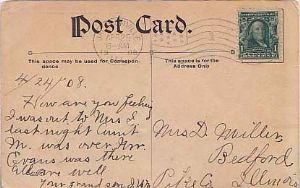 Post Card.
This space may be used for Correspondence
This space is for the Address Only
4/24/08.
How are you feeling
I was out to Mrs
last night Aunt
M. was over Mr.
Evans was there
all are well
Your grandson
Mrs D. Miller
Bedford
Pike Co Illinois